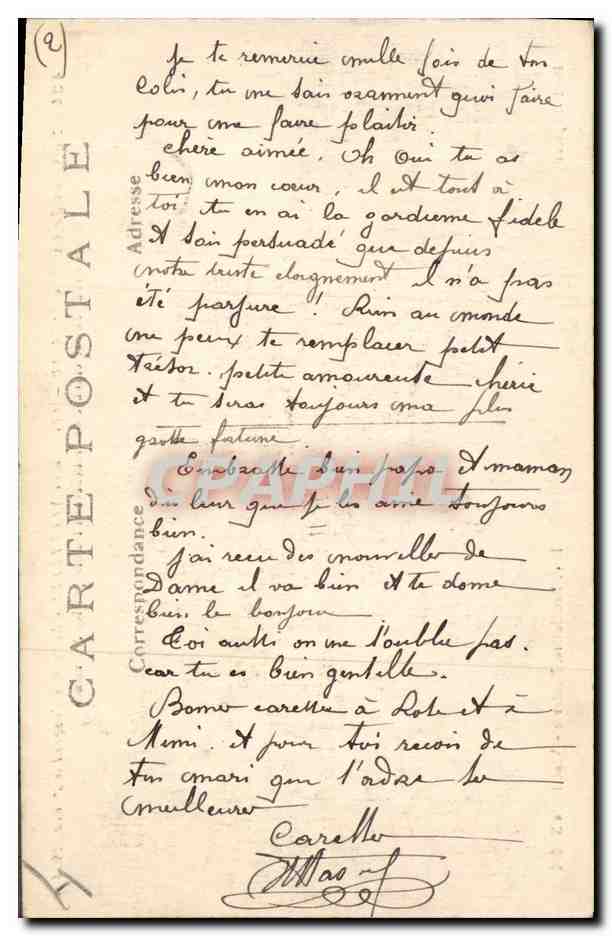 (2)
je te remercie mille fois de ton
Colis, tu ne sais vraiment quoi faire
pour me faire plaisir.
chère aimée. Oh Oui tu as
bien mon cœur, il est tout à
toi tu en ai la gardienne fidele
et sois persuadé que depuis
notre triste eloignement il n'a pas
été parjure ! Rien au monde
ne peux te remplacer petit
trésor. petite amoureuse chérie
et tu seras toujours ma plus
grosse fortune.
Embrasse bien papa et maman
dis leur que je les aime toujours
bien.
j'ai recu des nouvelles de
Dame il va bien et te donne
bien le bonjour
Toi aussi on ne t'oublie pas.
car tu es bien gentille.
Bonnes caresses à Lole et à
Mimi. et pour toi recois de
ton mari que t'adore les
meilleures
Caresses
CARTE POSTALE
Correspondance
Adresse
CPAPHIL